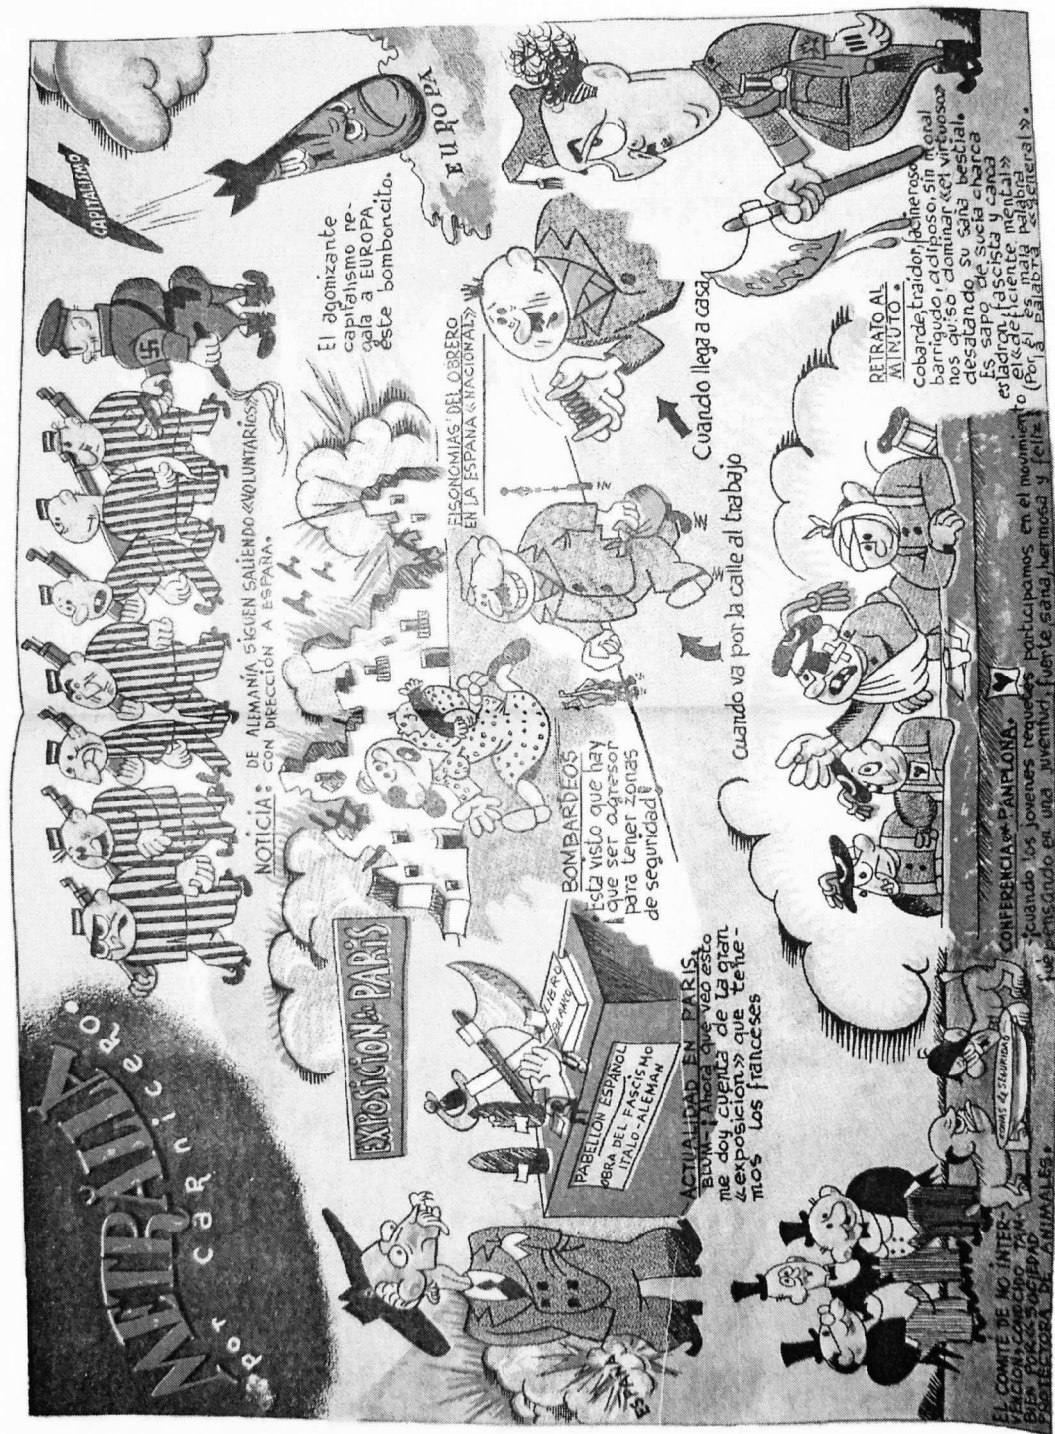 METRALLA
por CARnicero.
NOTICIA: DE ALEMANIA SIGUEN SALIENDO «VOLUNTARIOS»
CON DIRECCIÓN A ESPAÑA.
CAPITALISMO
EUROPA
El agonizante
capitalismo re-
gala a EUROPA
éste bomboncito.
EXPOSICION de PARIS
LIBRO
BLANCO
PABELLON ESPAÑOL
OBRA DEL FASCISMO
ITALO-ALEMAN
ACTUALIDAD EN PARIS.
BLUM-¡Ahora que veo esto
me doy cuenta de la gran
«exposicion» que tene-
mos los franceses
BOMBARDEOS
¡Está visto que hay
que ser agresor
para tener zonas
de seguridad!
FISONOMIAS DEL OBRERO
EN LA ESPAÑA «NACIONAL»
Cuando va por la calle al trabajo
Cuando llega a casa
RETRATO AL
MINUTO.
Cobarde, traidor, facineroso,
barrigudo, adiposo, sin moral
nos quiso dominar «el virtuoso»
desatando su saña bestial.
Es sapo de sucia charca
es ladron, fascista y canca
el «deficiente mental»
(Por él es mala palabra
la palabra «general».
EL COMITE DE NO INTER-
VENCION, CONOCIDO TAM-
BIEN POR «SOCIEDAD
PROTECTORA DE ANIMALES.
ZONAS de SEGURIDAD
CONFERENCIA en PAMPLONA.
¡Cuando los jovenes requetés participamos en el movimiento
fue pensando en una juventud fuente sana, hermosa y feliz!